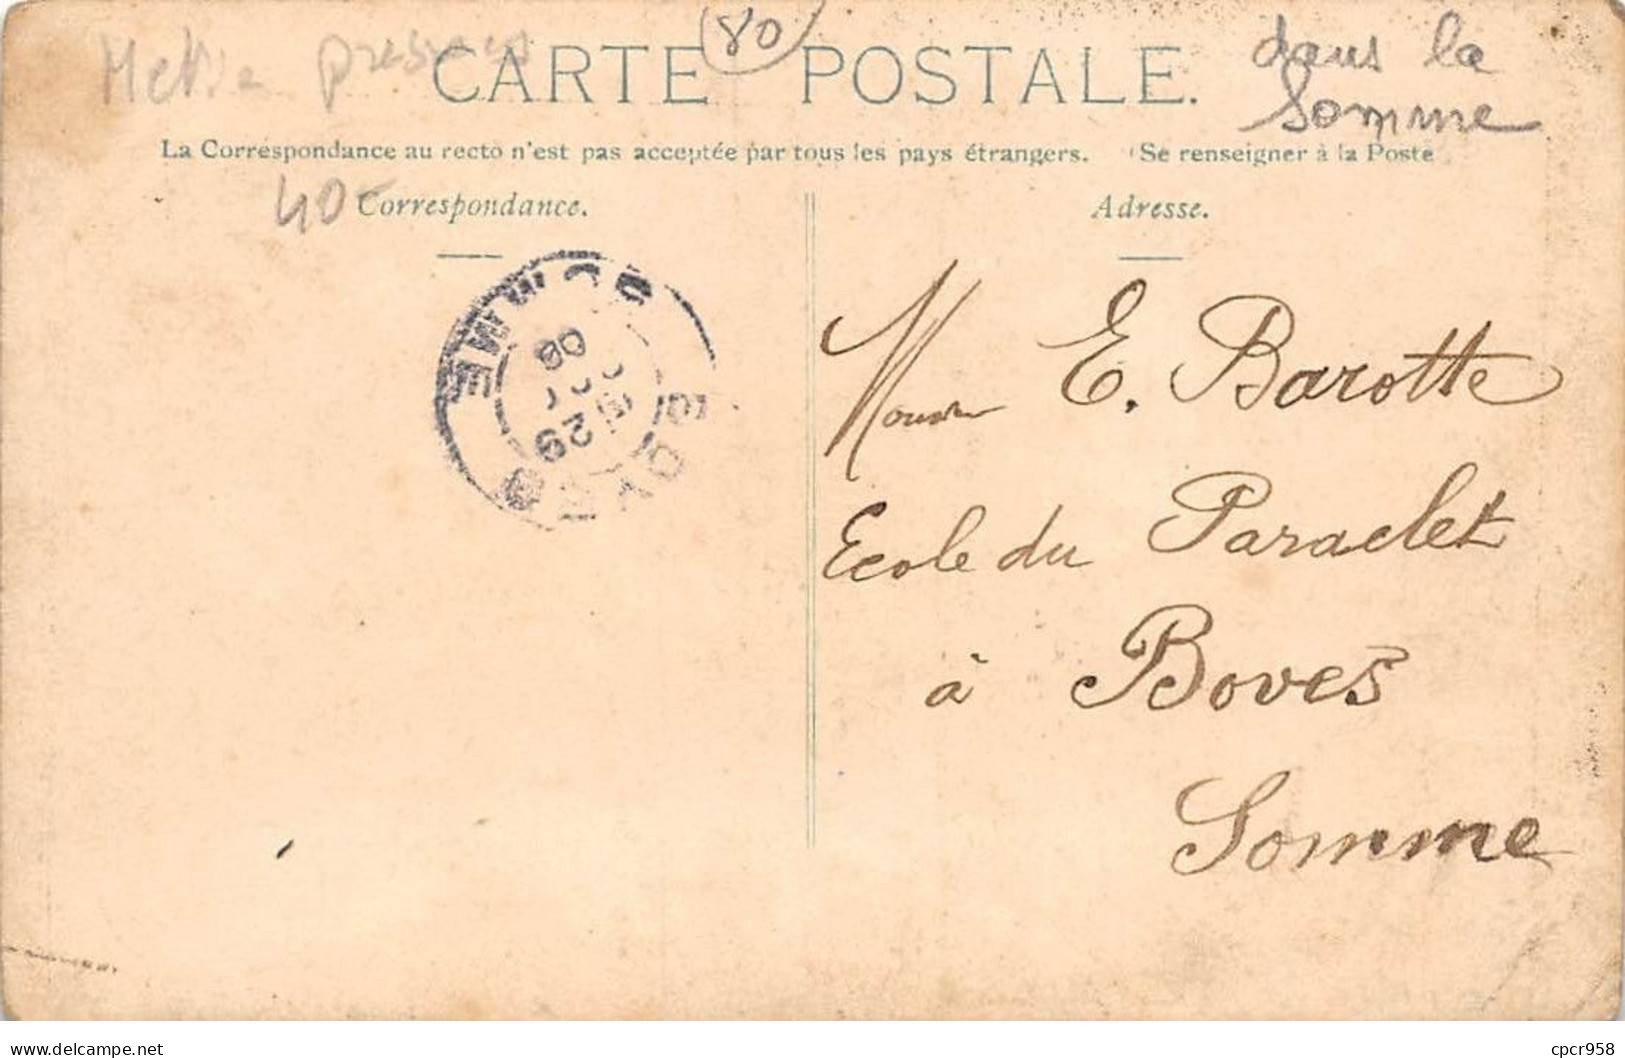 80
CARTE POSTALE.
dans la
Somme
La Correspondance au recto n'est pas acceptée par tous les pays étrangers. (Se renseigner à la Poste
40
Correspondance.
Adresse.
SOMME
29
08
BOVES
E. Barotte
Ecole du Paraclet
à Boves
Somme
delcampe.net
cpcr958